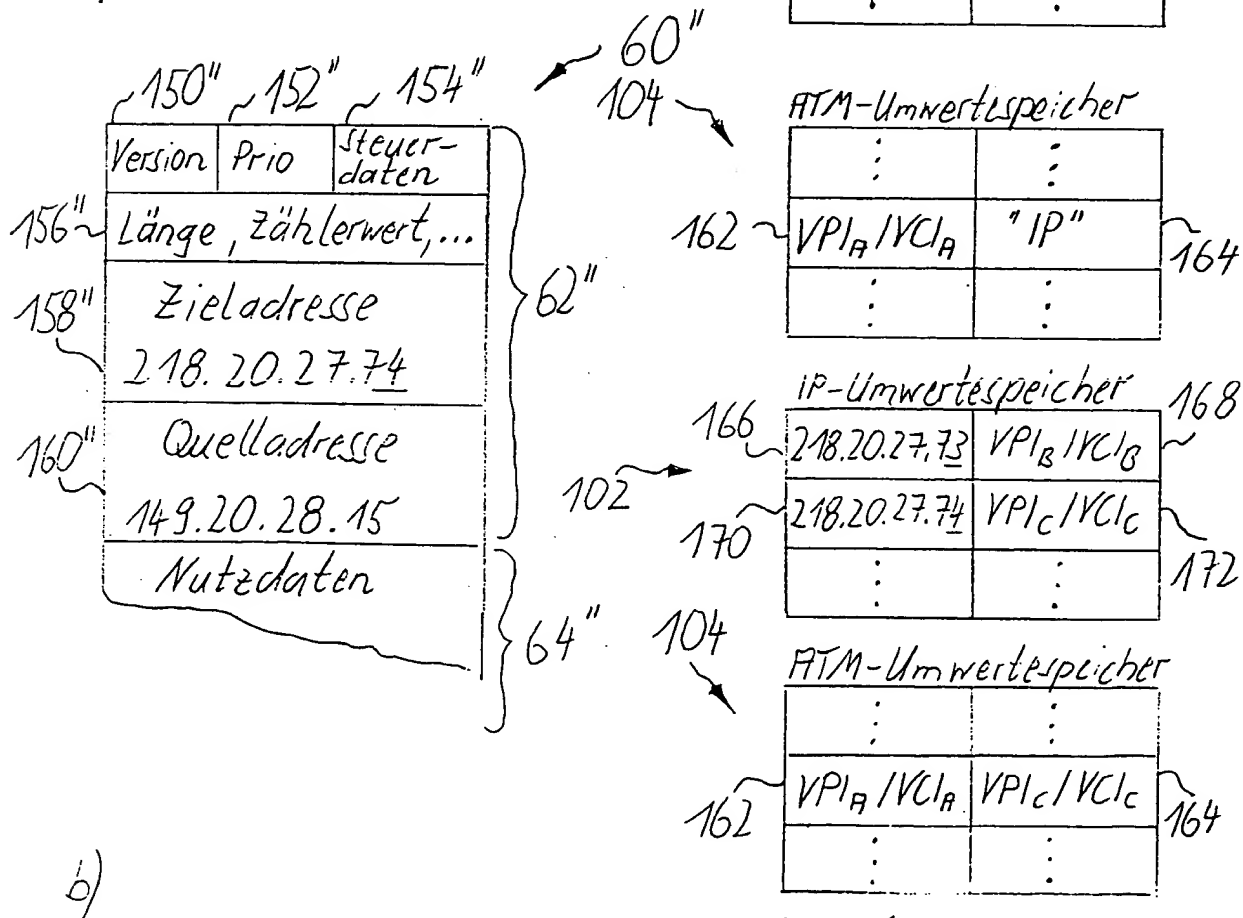 60"
150" 152" 154"
Version Prio Steuer-
daten
156" Länge, Zählerwert,...
62"
158" Zieladresse
218.20.27.74
160" Quelladresse
149.20.28.15
Nutzdaten
64"
104
ATM-Umwertespeicher
162 VPIA/VCIA "IP" 164
IP-Umwertespeicher
166 218.20.27.73 VPIB/VCIB 168
102
170 218.20.27.74 VPIC/VCIC 172
104
ATM-Umwertespeicher
162 VPIA/VCIA VPIC/VCIC 164
b)